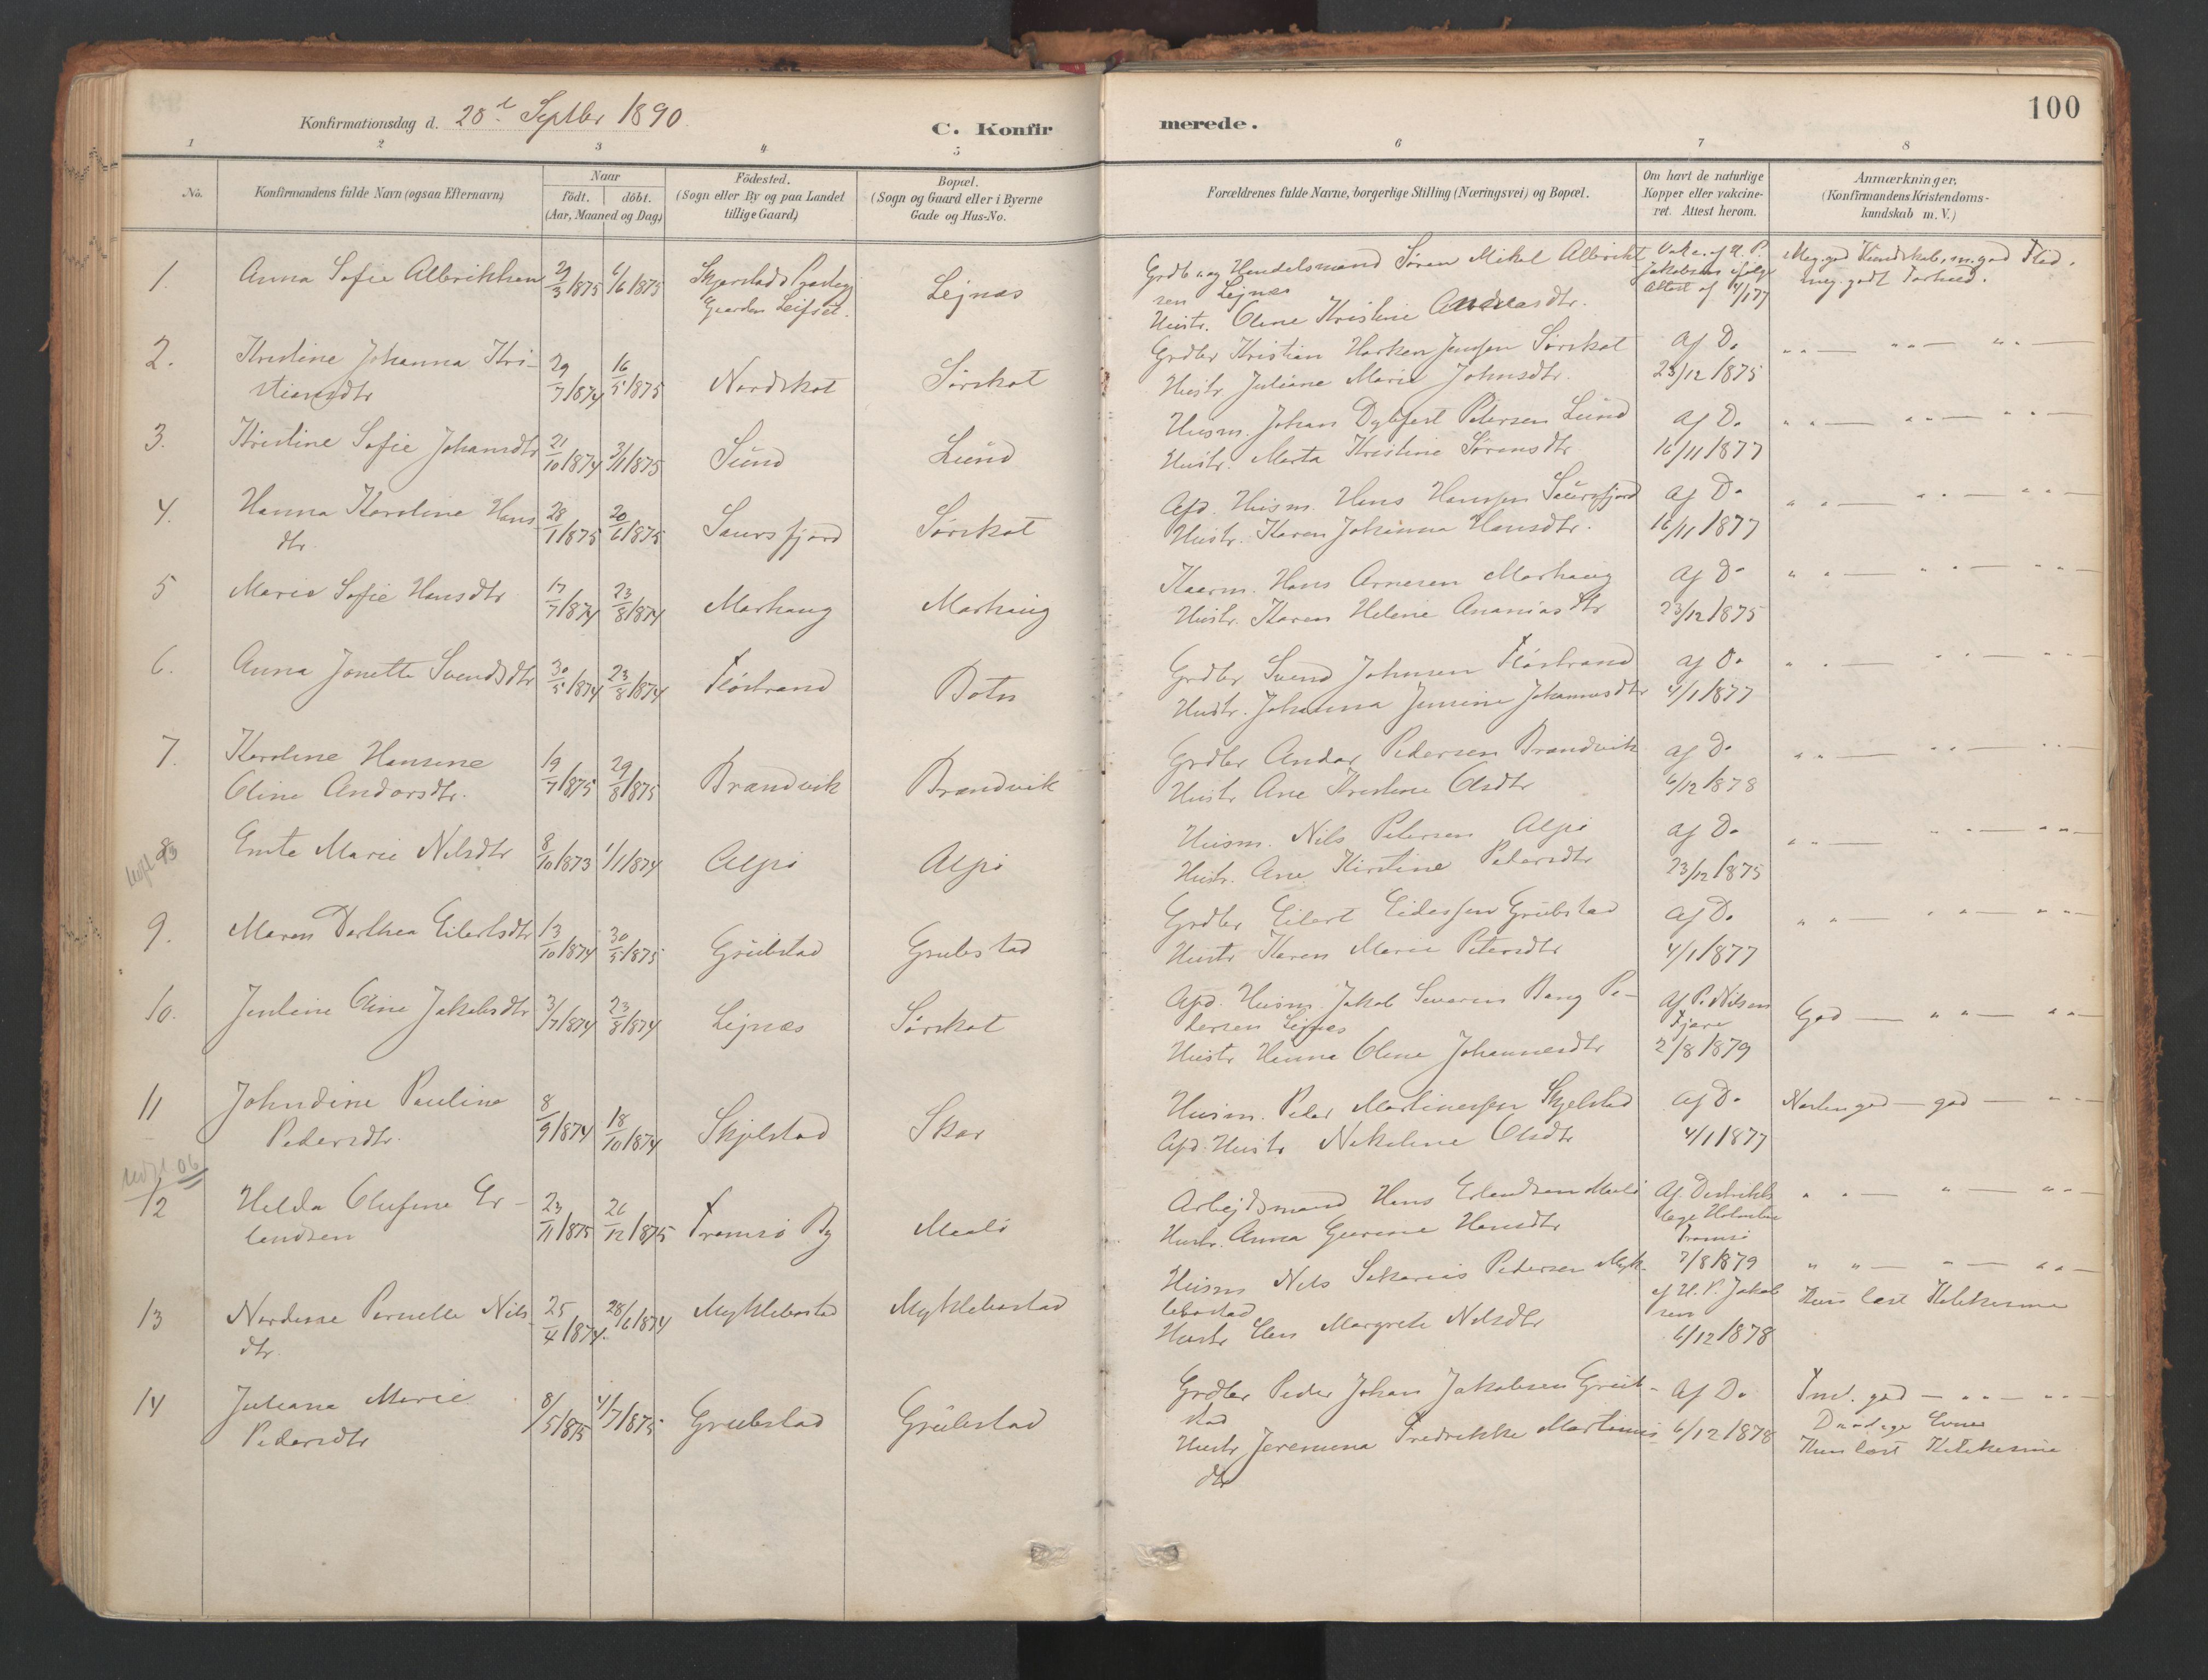 100
Konfirmationsdag d. 28de Septbr 1890
C. Konfirmerede.
1 2 3 4 5 6 7 8
No.
Konfirmandens fulde Navn (ogsaa Efternavn)
Naar
födt. döbt.
(Aar, Maaned og Dag)
Födested.
(Sogn eller By og paa Landet
tillige Gaard)
Bopæl.
(Sogn og Gaard eller i Byerne
Gade og Hus-No.
Forældrenes fulde Navne, borgerlige Stilling (Næringsvei) og Bopæl.
Om havt de naturlige
Kopper eller vakcine-
ret. Attest herom.
Anmærkninger,
(Konfirmandens Kristendoms-
kundskab m. V.)
1. Anna Sofie Albrikksen 29/3 1875 6/6 1875 Skjerstads Præsteg
Gaarden Leifset. Lejnæs
Grdbr. og Handelsmand Søren Mikal Albrikt
sen Lejnæs
Hustr. Oline Kristine Andreasdtr.
Vakc. af H. P.
Jakobsen ifølge
Attest af 4/1 77
Meg. god Kundskab, m. god Flid.
meg. godt Forhold.
2. Kristine Johanna Kri-
stiansdtr 29/7 1874 16/5 1875 Nordskot Sørskot
Grdbr Kristian Haaken Jensen Sørskot
Hustr. Juliane Marie Johnsdtr.
af Do
23/12 1875
" " — " " — " " —
3. Kristine Sofie Johansdtr 21/10 1874 3/1 1875 Sund Lund
Husm. Johan Dybfest Petersen Lund
Hustr. Marta Kristine Sørensdtr
af Do
16/11 1877
" " — " " — " " —
4. Hanna Karoline Hans
dtr. 28/1 1875 20/6 1875 Saursfjord Sørskot
Afd. Husm. Hans Hanssen Saursfjord
Hustr. Karen Johanna Hansdtr.
af Do
16/11 1877
" " — " " — " " —
5 Marie Sofie Hansdtr 17/7 1874 23/8 1874 Marhaug Marhaug
Kaarm. Hans Arnesen Marhaug
Hustr. Karen Helene Ananiasdtr
af Do
23/12 1875
" " — " " — " " —
6. Anna Jonette Svendsdtr 30/5 1874 23/8 1874 Fløstrand Botn
Grdbr Svend Johnsen Fløstrand
Hustr. Johanna Jensine Johannesdtr
af Do
4/1 1877
" " — " " — " " —
7. Karoline Hansine
Oline Andorsdtr. 19/7 1875 29/8 1875 Brandvik Brandvik
Grdbr Andor Pedersen Brandvik
Hustr Ane Kristine Olsdtr
af Do
6/12 1878
" " — " " — " " —
8 Emte Marie Nilsdtr 8/10 1873 1/1 1874 Alpø Alpø
Husm. Nils Petersen Alpø
Hustr. Ane Kirstine Pedersdtr
af Do
23/12 1875
" " — " " — " " —
9. Maren Dorthea Eilertsdtr 13/10 1874 30/5 1875 Grübstad Grubstad
Grdbr Eilert Eidessen Grübstad
Hustr Karen Marie Petersdtr
af Do
4/1 1877
" " — " " — " " —
10. Jentine Oline Jakobsdtr 3/7 1874 23/8 1874 Lejnæs Sørskot
Afd. Husm. Jakob Severin Bang Pe-
dersen Lejnæs
Hustr Hanna Oline Johannesdtr
af P. Nilsen
Fjære
2/8 1879
God — " " — " " —
11 Johndine Pauline
Pedersdtr. 8/9 1874 18/10 1874 Skjelstad Skar
Husm. Peder Martinussen Skjelstad
Afd. Hustr Nikoline Olsdtr
af Do
4/1 1877
Nastengod — god — " " —
12 Hilda Olufine Er-
landsen 23/11 1875 26/12 1875 Tromsø By Maalø
Arbejdsmand Hans Erlandsen Maalø
Hustr. Anna Gurine Hansdtr
Af. Distrikts
læge Holmboe
Tromsø
7/8 1879
" " — " — " " —
13 Nordine Pernelle Nils
dtr. 25/4 1874 28/6 1874 Myklebostad Myklebostad
Husm Nils Sakarias Pedersen Myk-
lebostad
Hustr Elen Margrete Nilsdtr
af H. P. Jakob
sen
6/12 1878
" " — " — " " —
Kun læst Katekisme
14 Juliana Marie
Pedersdtr 8/5 1875 4/7 1875 Grubstad Grübstad
Grdbr Peder Johan Jakobsen Grüb-
stad
Hustr Jeremina Fredrikke Martinus
dtr
af Do
6/12 1878
Tmd. god — " " — " "
Daarlige Evner
Kun læst Katekisme